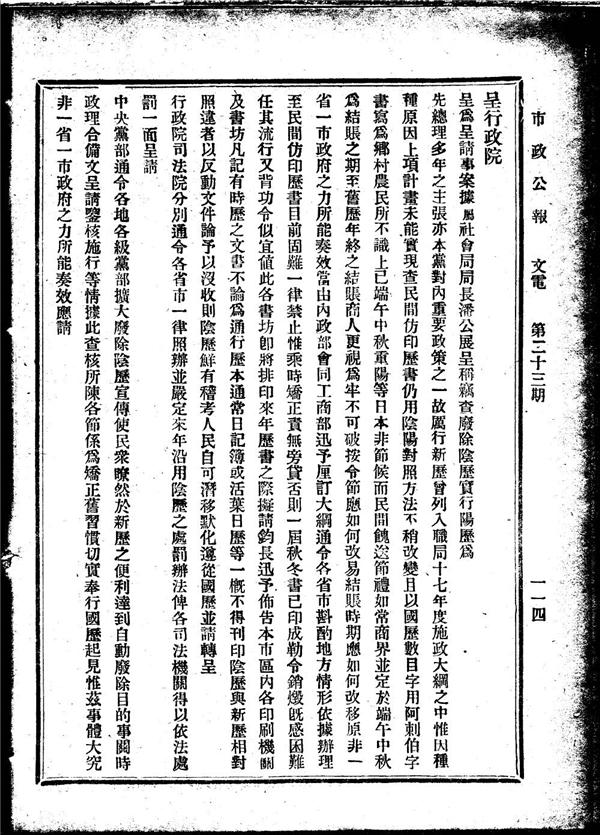 市政公報 文電 第三十三期 一一四
呈行政院
呈爲呈請事案據屬社會局局長潘公展呈稱竊查廢除陰歷實行陽歷爲
先總理多年之主張亦本黨對內重要政策之一故厲行新歷曾列入職局十七年度施政大綱之中惟因種
種原因上項計畫未能實現查民間仿印歷書仍用陰陽對照方法不稍改變且以國歷數目字用阿剌伯字
書寫爲鄉村農民所不識上已端午中秋重陽等日本非節候而民間餽送節禮如常商界並定於端午中秋
爲結賬之期至舊歷年終之結賬商人更視爲牢不可破按令節應如何改易結賬時期應如何改移原非一
省一市政府之力所能奏效當由內政部會同工商部迅予厘訂大綱通令各省市斟酌地方情形依據辦理
至民間仿印歷書目前固難一律禁止惟乘時矯正責無旁貸否則一屆秋冬書已印成勒令銷燬既感困難
任其流行又背功令似宜値此各書坊卽將排印來年歷書之際擬請鈞長迅予佈告本市區內各印刷機關
及書坊凡記有時歷之文書不論爲通行歷本通常日記簿或活葉日歷等一概不得刊印陰歷與新歷相對
照違者以反動文件論予以沒收則陰歷鮮有稽考人民自可潛移默化遵從國歷並請轉呈
行政院司法院分別通令各省市一律照辦並嚴定來年沿用陰歷之處罰辦法俾各司法機關得以依法處
罰一面呈請
中央黨部通令各地各級黨部擴大廢除陰歷宣傳使民衆瞭然於新歷之便利達到自動廢除目的事關時
政理合備文呈請鑒核施行等情據此查核所陳各節係爲矯正舊習慣切實奉行國歷起見惟茲事體大究
非一省一市政府之力所能奏效應請